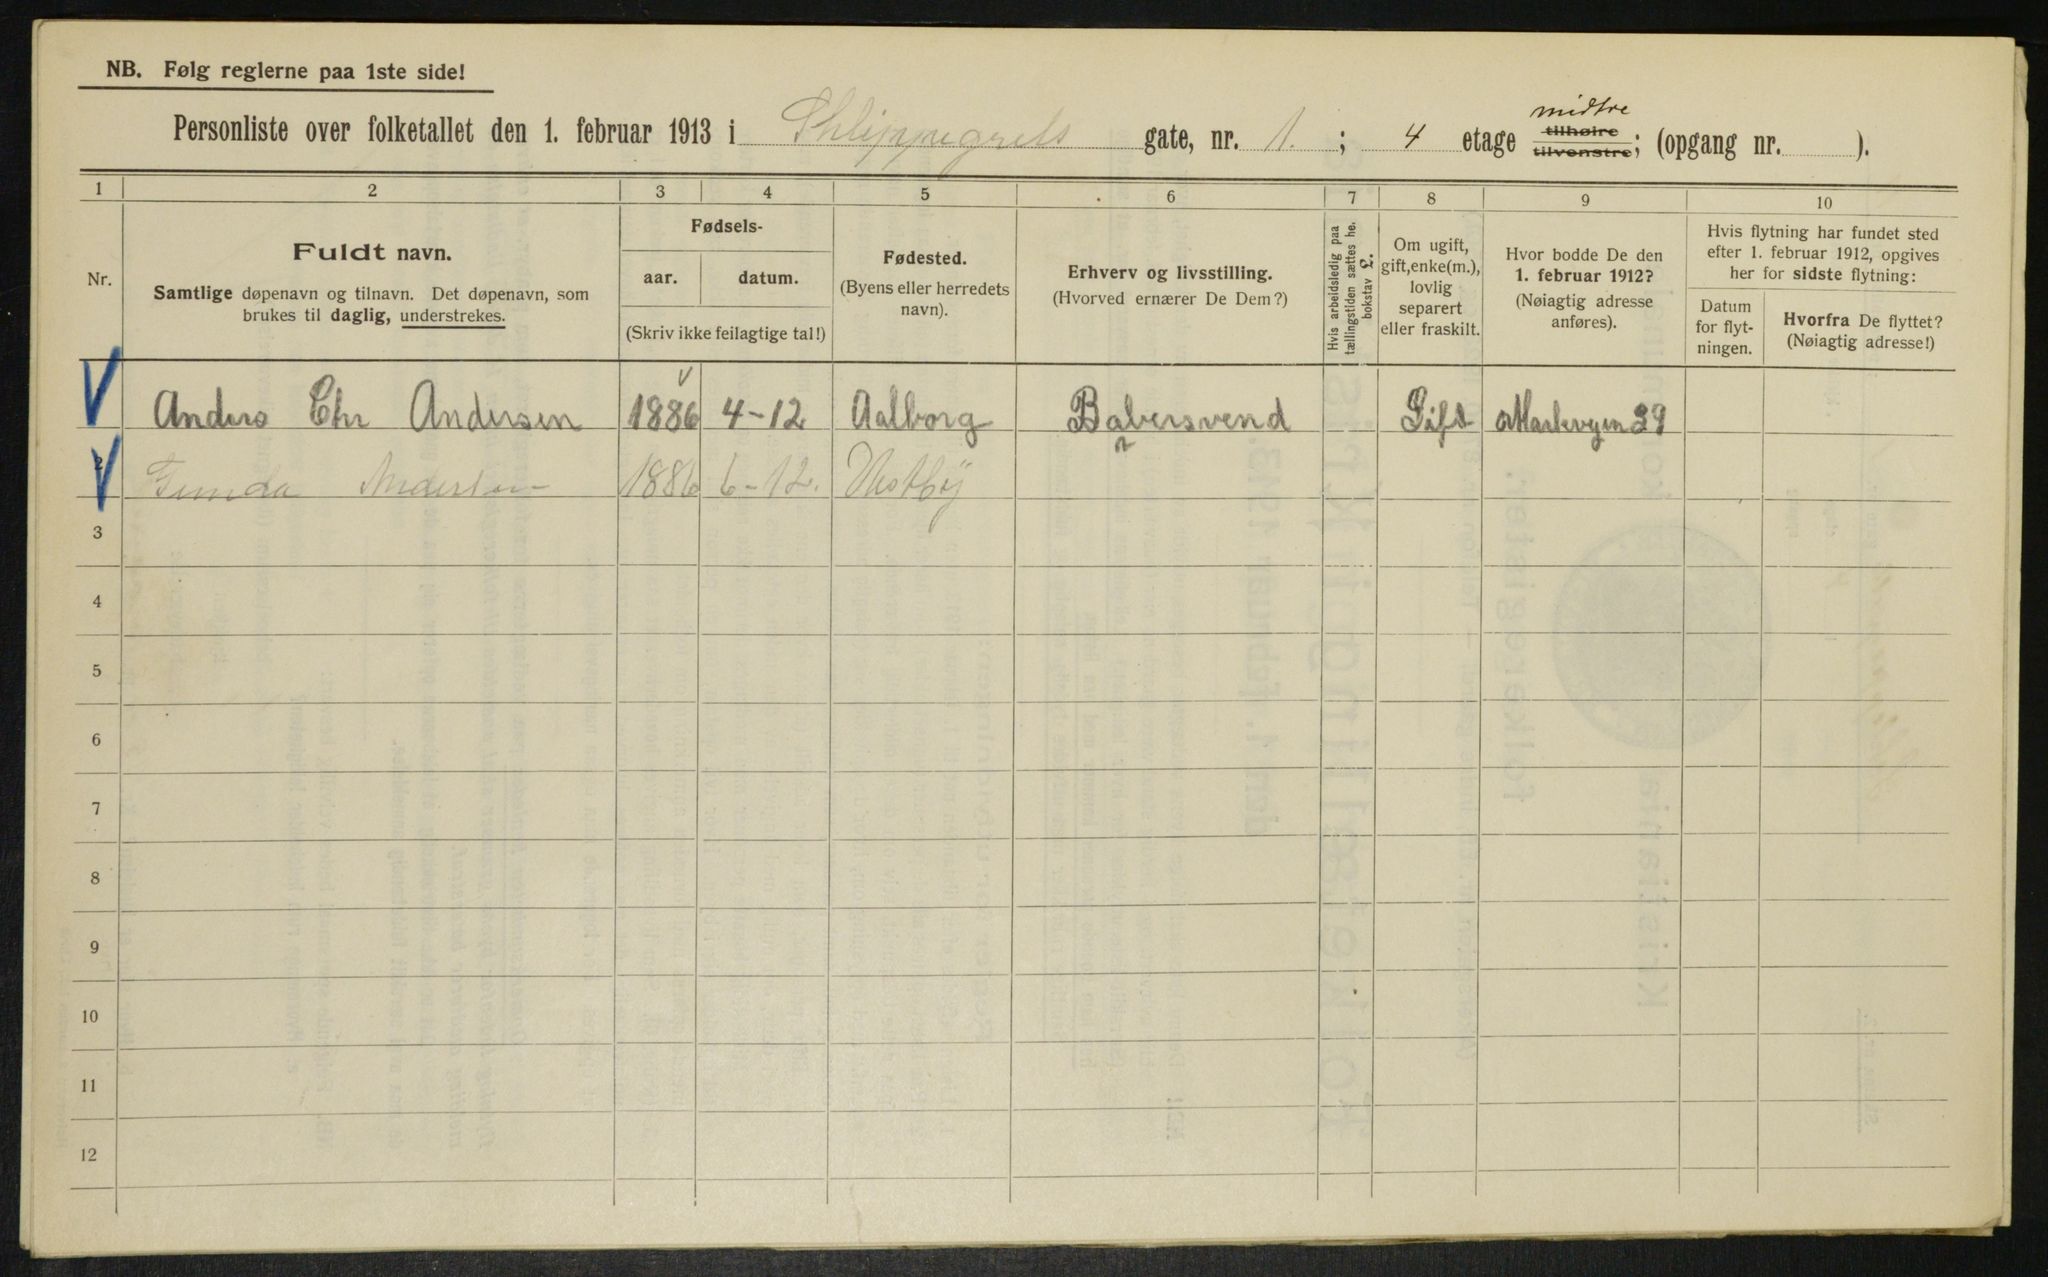 NB. Følg reglerne paa 1ste side!
midtre
Personliste over folketallet den 1. februar 1913 i Schleppegrels gate, nr. 1. ; 4 etage tilhøire tilvenstre; (opgang nr. ).
1 2 3 4 5 6 7 8 9 10
Nr.
Fuldt navn.
Samtlige døpenavn og tilnavn. Det døpenavn, som
brukes til daglig, understrekes.
Fødsels-
aar. datum.
(Skriv ikke feilagtige tal!)
Fødested.
(Byens eller herredets
navn).
Erhverv og livsstilling.
(Hvorved ernærer De Dem?)
Hvis arbeidsledig paa
tællingstiden sættes he.
bokstav L.
Om ugift,
gift, enke(m.),
lovlig
separert
eller fraskilt.
Hvor bodde De den
1. februar 1912?
(Nøiagtig adresse
anføres).
Hvis flytning har fundet sted
efter 1. februar 1912, opgives
her for sidste flytning:
Datum
for flyt-
ningen.
Hvorfra De flyttet?
(Nøiagtig adresse!)
Anders Chr Andersen 1886 4-12 Aalborg Babersvend Gift Markvegen 29
2 Gunda Andersen 1886 6-12. Vestby
3
4
5
6
7
8
9
10
11
12